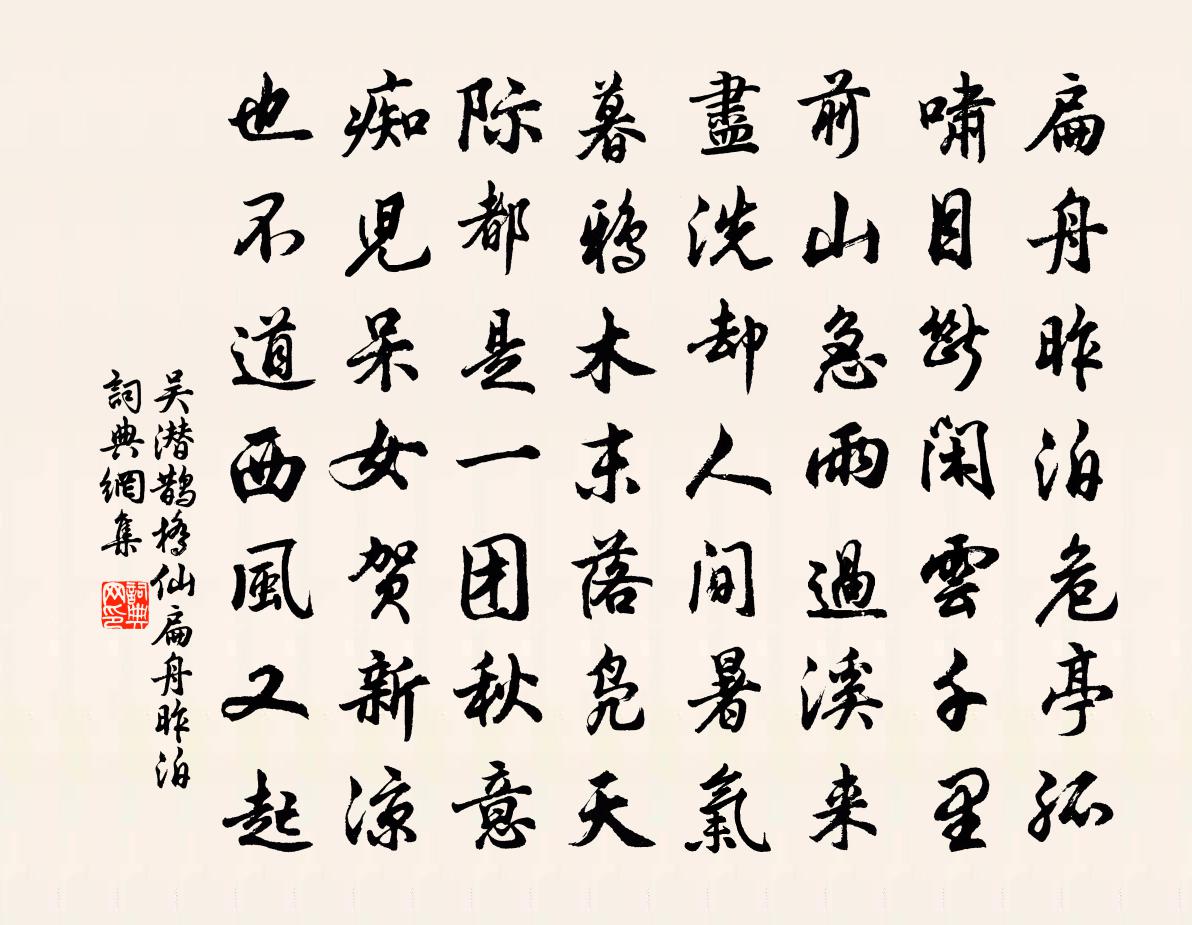 扁舟昨泊危亭孤
嘯目斷閑雲千里
前山急雨過溪来
盡洗却人間暑氣
暮鴉木末落凫天
际都是一团秋意
痴児呆女贺新凉
也不道西風又起
吴潜鹊橋仙扁舟昨泊
詞典網集
詞典